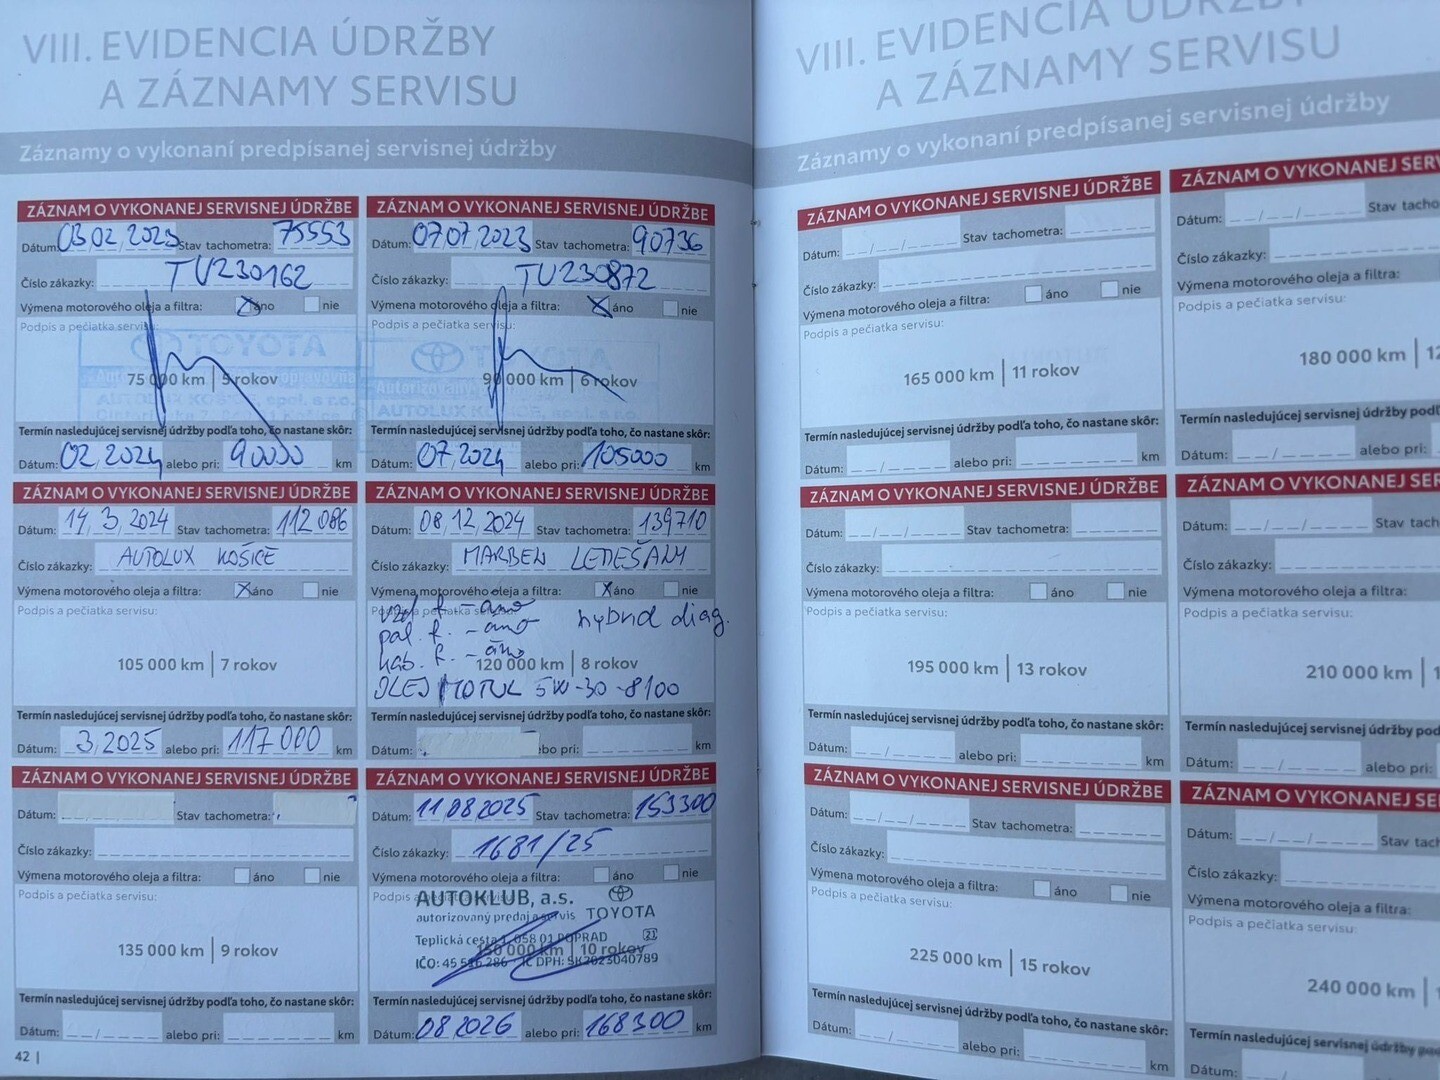 VIII. EVIDENCIA ÚDRŽBY
A ZÁZNAMY SERVISU
Záznamy o vykonaní predpísanej servisnej údržby
ZÁZNAM O VYKONANEJ SERVISNEJ ÚDRŽBE
Dátum: 03,02,2023 Stav tachometra: 75553
Číslo zákazky: TU230162
Výmena motorového oleja a filtra: áno nie
Podpis a pečiatka servisu:
TOYOTA
75 000 km | 5 rokov
AUTOLUX KOŠICE, spol. s r.o.
Termín nasledujúcej servisnej údržby podľa toho, čo nastane skôr:
Dátum: 02,2024 alebo pri: 90000 km
ZÁZNAM O VYKONANEJ SERVISNEJ ÚDRŽBE
Dátum: 07.07.2023 Stav tachometra: 90736
Číslo zákazky: TU230872
Výmena motorového oleja a filtra: áno nie
Podpis a pečiatka servisu:
TOYOTA
90 000 km | 6 rokov
AUTOLUX KOŠICE, spol. s r.o.
Termín nasledujúcej servisnej údržby podľa toho, čo nastane skôr:
Dátum: 07,2024 alebo pri: 105000 km
ZÁZNAM O VYKONANEJ SERVISNEJ ÚDRŽBE
Dátum: 14,3,2024 Stav tachometra: 112 086
Číslo zákazky: AUTOLUX KOŠICE
Výmena motorového oleja a filtra: áno nie
Podpis a pečiatka servisu:
105 000 km | 7 rokov
Termín nasledujúcej servisnej údržby podľa toho, čo nastane skôr:
Dátum: 3,2025 alebo pri: 117 000 km
ZÁZNAM O VYKONANEJ SERVISNEJ ÚDRŽBE
Dátum: 08,12,2024 Stav tachometra: 139710
Číslo zákazky: MARBEN
Výmena motorového oleja a filtra: áno nie
Podpis a pečiatka servisu:
f. - áno hybrid diag.
pal. f. - áno
kab. f. - áno
120 000 km | 8 rokov
OLEJ MOTUL 5W-30-8100
Termín nasledujúcej servisnej údržby podľa toho, čo nastane skôr:
Dátum: alebo pri: km
ZÁZNAM O VYKONANEJ SERVISNEJ ÚDRŽBE
Dátum: Stav tachometra:
Číslo zákazky:
Výmena motorového oleja a filtra: áno nie
Podpis a pečiatka servisu:
135 000 km | 9 rokov
Termín nasledujúcej servisnej údržby podľa toho, čo nastane skôr:
Dátum: alebo pri: km
ZÁZNAM O VYKONANEJ SERVISNEJ ÚDRŽBE
Dátum: 11 08 2025 Stav tachometra: 153300
Číslo zákazky: 1681/25
Výmena motorového oleja a filtra: áno nie
AUTOKLUB, a.s.
autorizovaný predaj a servis TOYOTA
Teplická cesta 1, 058 01 POPRAD 21
150 000 km | 10 rokov
IČ DPH: SK2023040789
Termín nasledujúcej servisnej údržby podľa toho, čo nastane skôr:
Dátum: 08 2026 alebo pri: 168300 km
42 |
VIII. EVIDENCIA ÚDRŽBY
A ZÁZNAMY SERVISU
Záznamy o vykonaní predpísanej servisnej údržby
ZÁZNAM O VYKONANEJ SERVISNEJ ÚDRŽBE
Dátum: Stav tachometra:
Číslo zákazky:
Výmena motorového oleja a filtra: áno nie
Podpis a pečiatka servisu:
165 000 km | 11 rokov
Termín nasledujúcej servisnej údržby podľa toho, čo nastane skôr:
Dátum: alebo pri: km
ZÁZNAM O VYKONANEJ SER
Dátum: Stav tacho
Číslo zákazky:
Výmena motorového oleja a filtra:
Podpis a pečiatka servisu:
180 000 km | 12
Termín nasledujúcej servisnej údržby podľ
Dátum: alebo pri:
ZÁZNAM O VYKONANEJ SERVISNEJ ÚDRŽBE
Dátum: Stav tachometra:
Číslo zákazky:
Výmena motorového oleja a filtra: áno nie
Podpis a pečiatka servisu:
195 000 km | 13 rokov
Termín nasledujúcej servisnej údržby podľa toho, čo nastane skôr:
Dátum: alebo pri: km
ZÁZNAM O VYKONANEJ SER
Dátum: Stav tach
Číslo zákazky:
Výmena motorového oleja a filtra:
Podpis a pečiatka servisu:
210 000 km | 1
Termín nasledujúcej servisnej údržby pod
Dátum: alebo pri:
ZÁZNAM O VYKONANEJ SERVISNEJ ÚDRŽBE
Dátum: Stav tachometra:
Číslo zákazky:
Výmena motorového oleja a filtra: áno nie
Podpis a pečiatka servisu:
225 000 km | 15 rokov
Termín nasledujúcej servisnej údržby podľa toho, čo nastane skôr:
Dátum: alebo pri: km
ZÁZNAM O VYKONANEJ SER
Dátum: Stav tach
Číslo zákazky:
Výmena motorového oleja a filtra:
Podpis a pečiatka servisu:
240 000 km
Termín nasledujúcej servisnej údržby
Dátum: alebo pri: